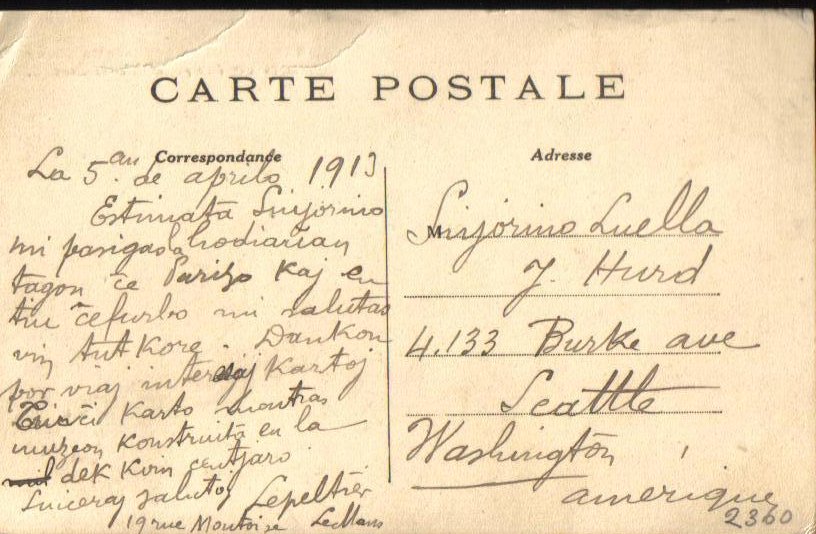 CARTE POSTALE
Correspondance
Adresse
La 5.an de aprilo 1913
Estimata Sinjorino
mi pasigas la hodiaŭan
tagon ĉe Parizo kaj en
tiu ĉefurbo mi salutas
vin tutkore. Dankon
por viaj interesaj kartoj
Tiu ĉi karto montras
muzeon konstruita en la
dek kvin centjaro
Sinceraj salutoj Lepeltier
19 rue Montoise Le Mans
M Sinjorino Luella
J. Hurd
4.133 Burke ave
Seattle
Washington
amerique
2360